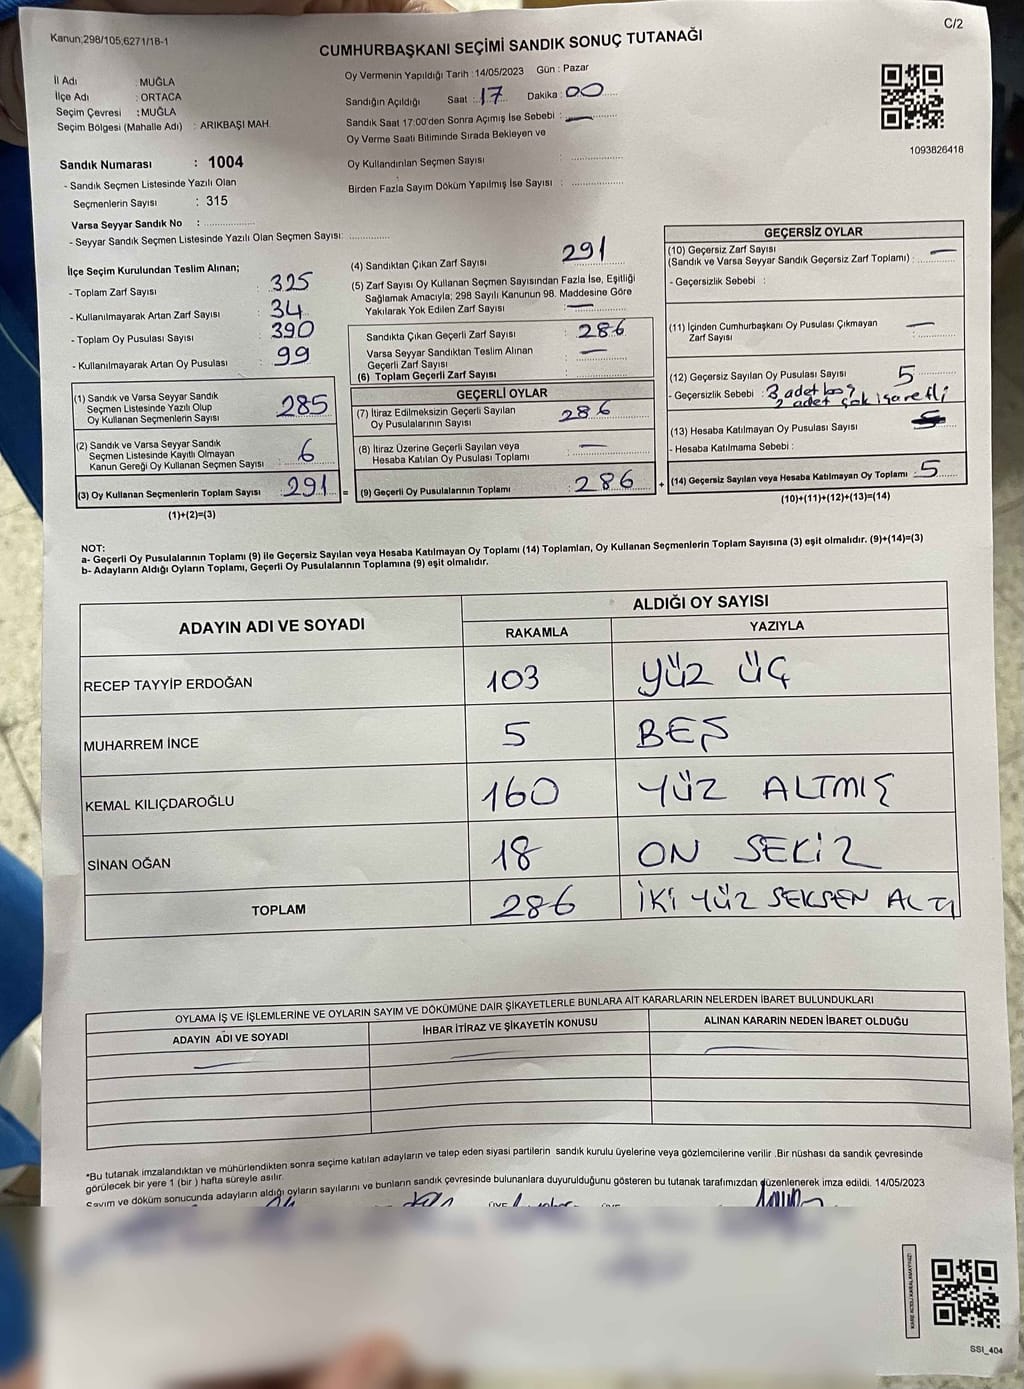 Kanun;298/105;6271/18-1
C/2
CUMHURBAŞKANI SEÇİMİ SANDIK SONUÇ TUTANAĞI
İl Adı : MUĞLA
İlçe Adı : ORTACA
Seçim Çevresi : MUĞLA
Seçim Bölgesi (Mahalle Adı) : ARIKBAŞI MAH.
Sandık Numarası : 1004
- Sandık Seçmen Listesinde Yazılı Olan
Seçmenlerin Sayısı : 315
Varsa Seyyar Sandık No :
- Seyyar Sandık Seçmen Listesinde Yazılı Olan Seçmen Sayısı:
Oy Vermenin Yapıldığı Tarih : 14/05/2023 Gün : Pazar
Sandığın Açıldığı Saat : 17 Dakika : 00
Sandık Saat 17:00'den Sonra Açımış İse Sebebi : —
Oy Verme Saati Bitiminde Sırada Bekleyen ve
Oy Kullandırılan Seçmen Sayısı :
Birden Fazla Sayım Döküm Yapılmış İse Sayısı :
1093826418
İlçe Seçim Kurulundan Teslim Alınan;
- Toplam Zarf Sayısı : 325
- Kullanılmayarak Artan Zarf Sayısı : 34
- Toplam Oy Pusulası Sayısı : 390
- Kullanılmayarak Artan Oy Pusulası : 99
(1) Sandık ve Varsa Seyyar Sandık
Seçmen Listesinde Yazılı Olup
Oy Kullanan Seçmenlerin Sayısı : 285
(2) Sandık ve Varsa Seyyar Sandık
Seçmen Listesinde Kayıtlı Olmayan
Kanun Gereği Oy Kullanan Seçmen Sayısı : 6
(3) Oy Kullanan Seçmenlerin Toplam Sayısı : 291 =
(1)+(2)=(3)
(4) Sandıktan Çıkan Zarf Sayısı : 291
(5) Zarf Sayısı Oy Kullanan Seçmen Sayısından Fazla İse, Eşitliği
Sağlamak Amacıyla; 298 Sayılı Kanunun 98. Maddesine Göre
Yakılarak Yok Edilen Zarf Sayısı : —
Sandıkta Çıkan Geçerli Zarf Sayısı : 286
Varsa Seyyar Sandıktan Teslim Alınan
Geçerli Zarf Sayısı : —
(6) Toplam Geçerli Zarf Sayısı :
GEÇERLİ OYLAR
(7) İtiraz Edilmeksizin Geçerli Sayılan
Oy Pusulalarının Sayısı : 286
(8) İtiraz Üzerine Geçerli Sayılan veya
Hesaba Katılan Oy Pusulası Toplamı : —
(9) Geçerli Oy Pusulalarının Toplamı : 286 +
GEÇERSİZ OYLAR
(10) Geçersiz Zarf Sayısı
(Sandık ve Varsa Seyyar Sandık Geçersiz Zarf Toplamı) : —
- Geçersizlik Sebebi :
(11) İçinden Cumhurbaşkanı Oy Pusulası Çıkmayan
Zarf Sayısı : —
(12) Geçersiz Sayılan Oy Pusulası Sayısı : 5
- Geçersizlik Sebebi : 3 adet boş
2 adet çok işaretli
(13) Hesaba Katılmayan Oy Pusulası Sayısı
- Hesaba Katılmama Sebebi :
(14) Geçersiz Sayılan veya Hesaba Katılmayan Oy Toplamı : 5
(10)+(11)+(12)+(13)=(14)
NOT:
a- Geçerli Oy Pusulalarının Toplamı (9) ile Geçersiz Sayılan veya Hesaba Katılmayan Oy Toplamı (14) Toplamları, Oy Kullanan Seçmenlerin Toplam Sayısına (3) eşit olmalıdır. (9)+(14)=(3)
b- Adayların Aldığı Oyların Toplamı, Geçerli Oy Pusulalarının Toplamına (9) eşit olmalıdır.
ADAYIN ADI VE SOYADI
ALDIĞI OY SAYISI
RAKAMLA YAZIYLA
RECEP TAYYİP ERDOĞAN 103 YÜZ ÜÇ
MUHARREM İNCE 5 BEŞ
KEMAL KILIÇDAROĞLU 160 YÜZ ALTMIŞ
SİNAN OĞAN 18 ON SEKİZ
TOPLAM 286 İKİ YÜZ SEKSEN ALTI
OYLAMA İŞ VE İŞLEMLERİNE VE OYLARIN SAYIM VE DÖKÜMÜNE DAİR ŞİKAYETLERLE BUNLARA AİT KARARLARIN NELERDEN İBARET BULUNDUKLARI
ADAYIN ADI VE SOYADI İHBAR İTİRAZ VE ŞİKAYETİN KONUSU ALINAN KARARIN NEDEN İBARET OLDUĞU
*Bu tutanak imzalandıktan ve mühürlendikten sonra seçime katılan adayların ve talep eden siyasi partilerin sandık kurulu üyelerine veya gözlemcilerine verilir .Bir nüshası da sandık çevresinde
görülecek bir yere 1 (bir ) hafta süreyle asılır.
Sayım ve döküm sonucunda adayların aldığı oyların sayılarını ve bunların sandık çevresinde bulunanlara duyurulduğunu gösteren bu tutanak tarafımızdan düzenlenerek imza edildi. 14/05/2023
SSI_404